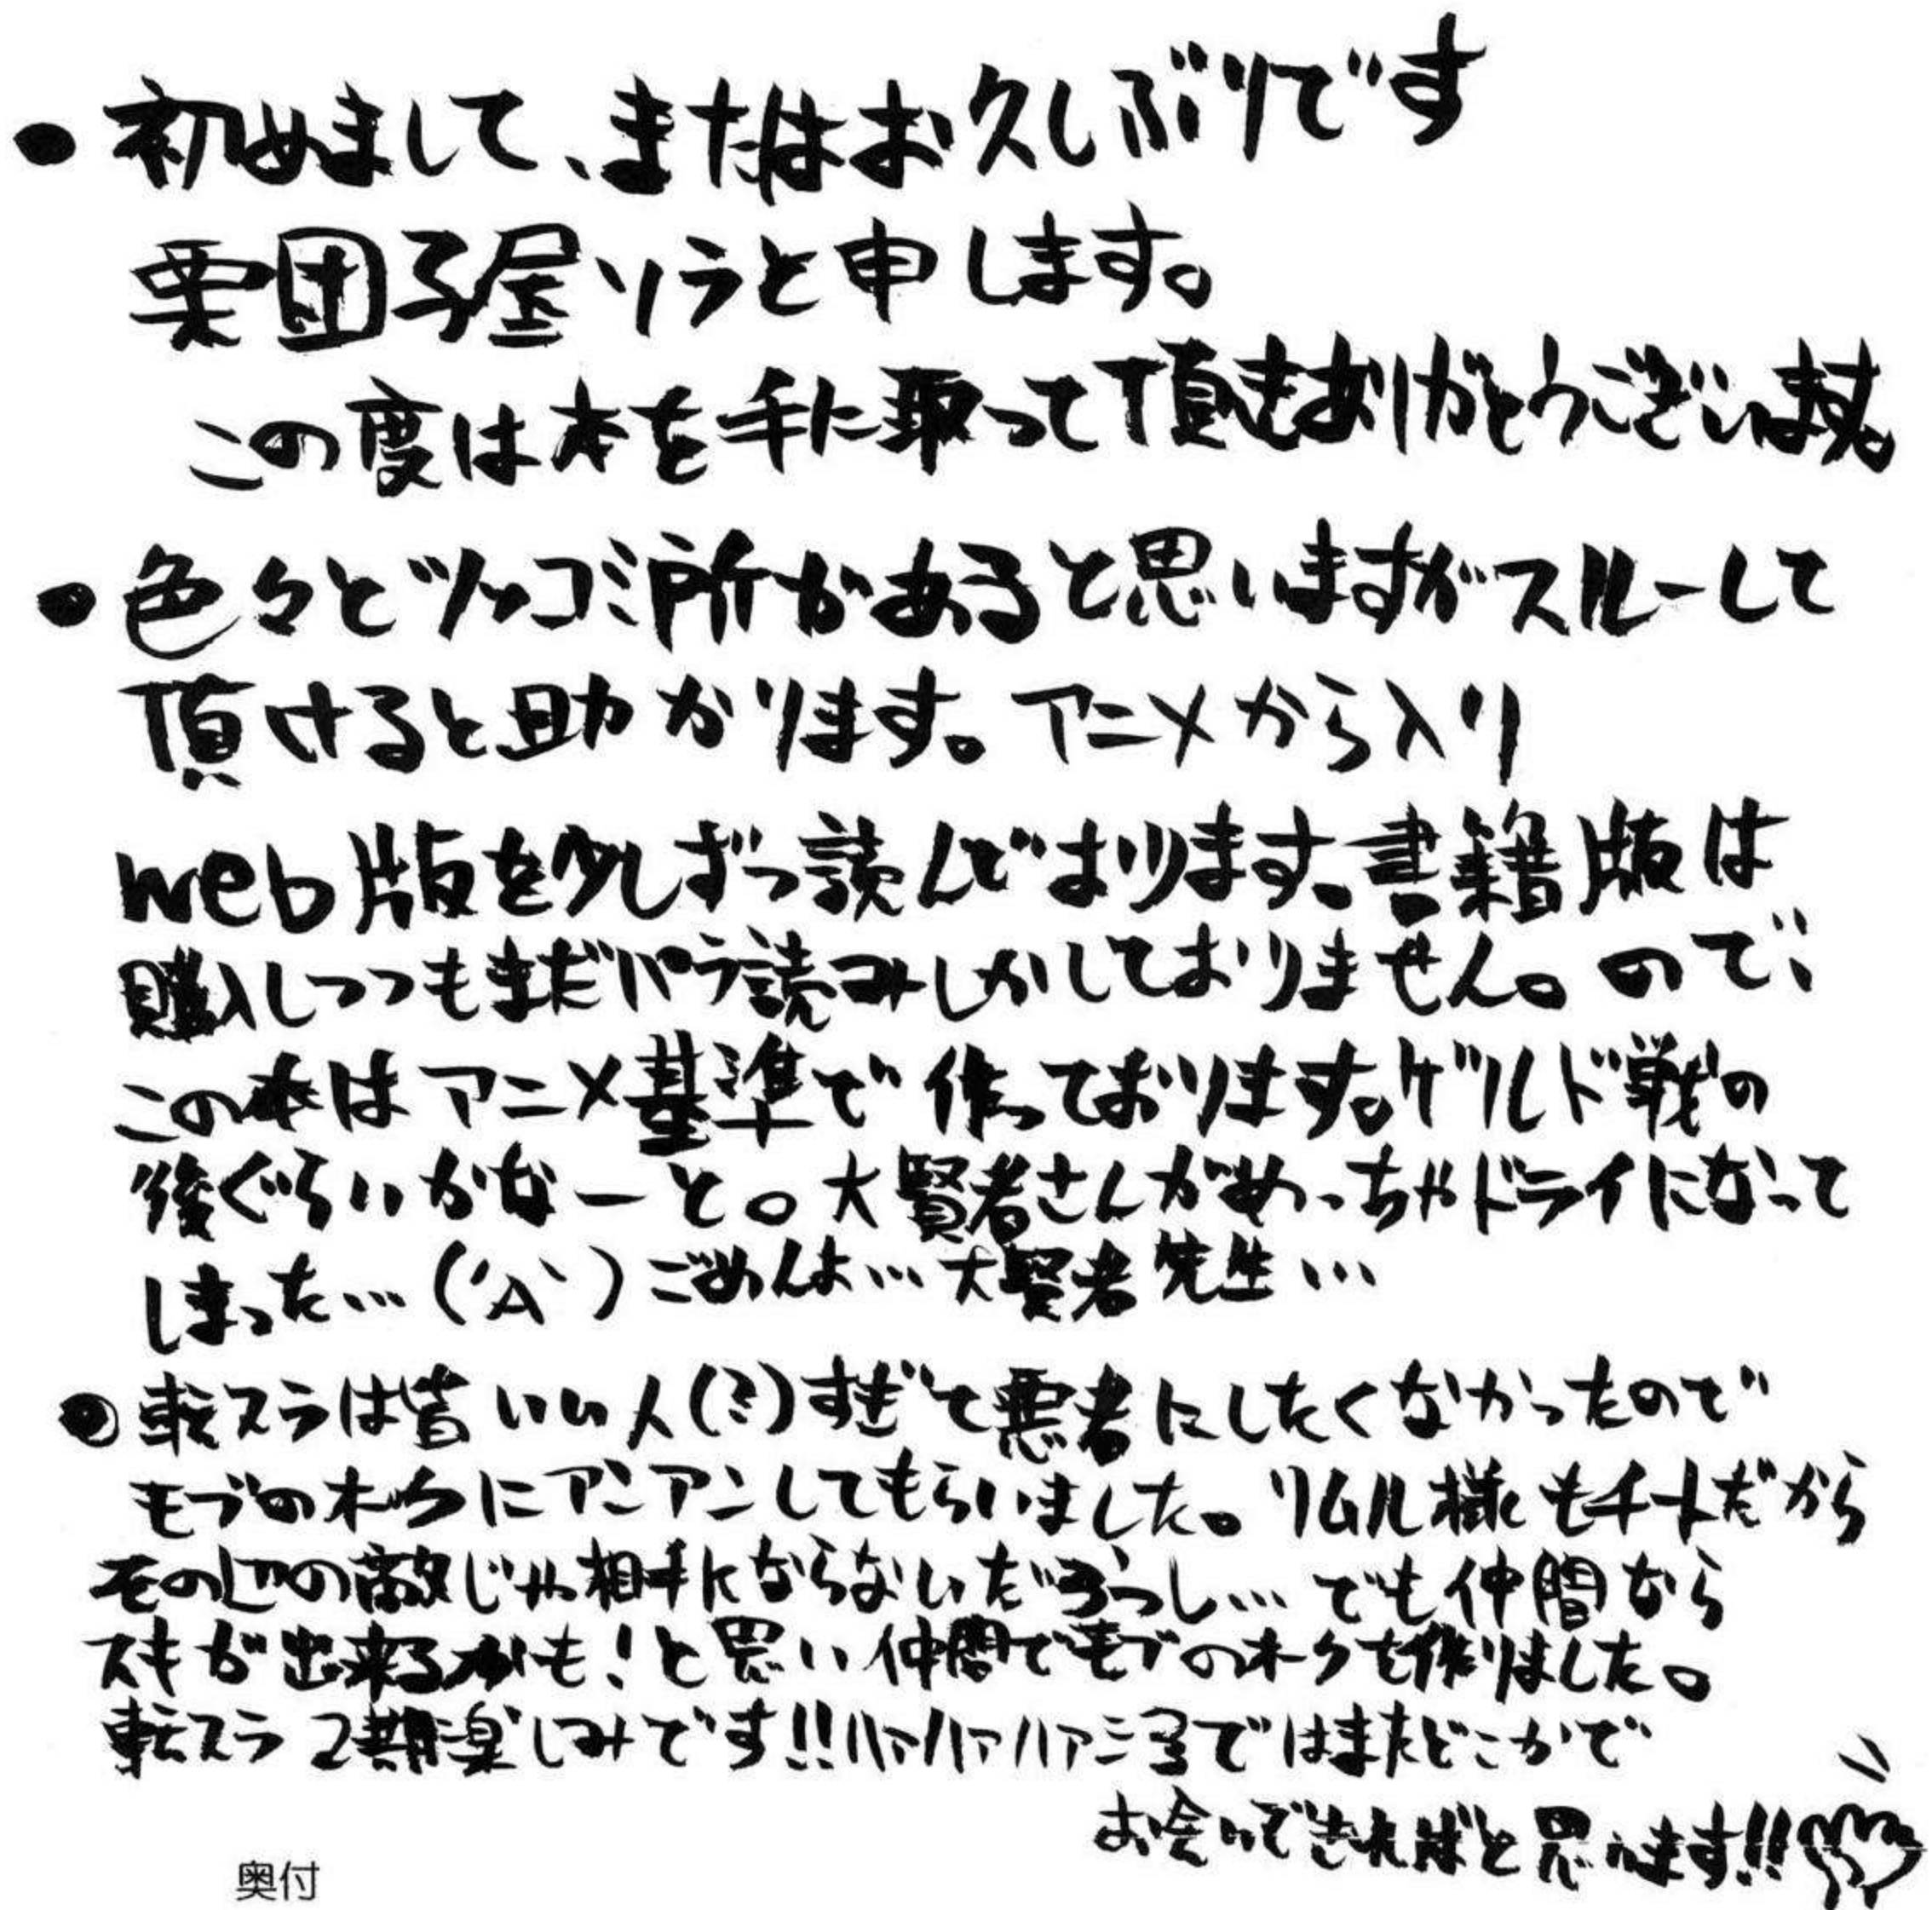 ・初めまして、またはお久しぶりです
栗団子屋ソラと申します。
この度は本を手に取って頂きありがとうございます。
・色々とツッコミ所があると思いますがスルーして
頂けると助かります。アニメから入り
web版を少しずつ読んでおります。書籍版は
購入しつつもまだパラ読みしかしておりません。ので、
この本はアニメ基準で作っております。ゲルド戦の
後ぐらいかなーと。大賢者さんがめっちゃドライになって
しまった…('A`)ごめんよ…大賢者先生…
・転スラは皆いい人(?)すぎて悪者にしたくなかったので
モブのオークにアンアンしてもらいました。リムル様もチートだから
その辺の敵じゃ相手にならないだろうし…でも仲間なら
スキが出来るかも!と思い仲間でモブのオークを作りました。
転スラ2期楽しみです!!ハァハァハァではまたどこかで
お会いできればと思います!!
奥付